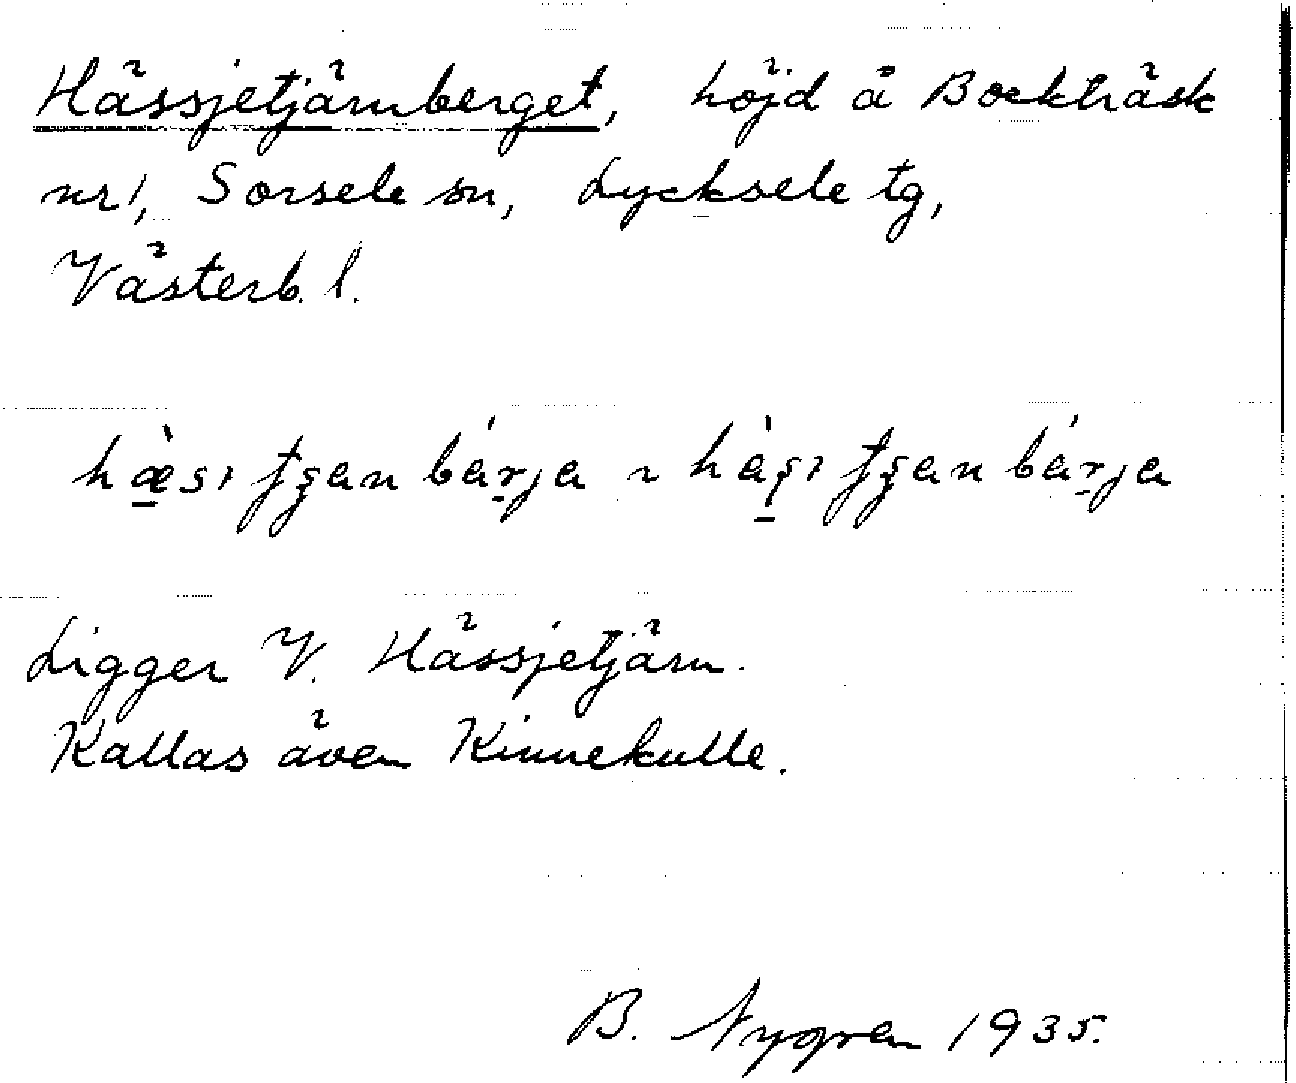 Hässjetjärnberget, höjd å Bockträsk
nr 1, Sorsele sn, Lycksele tg,
Västerb. l.
Ligger V. Hässjetjärn.
Kallas även Kinnekulle.
B. Nygren 1935.